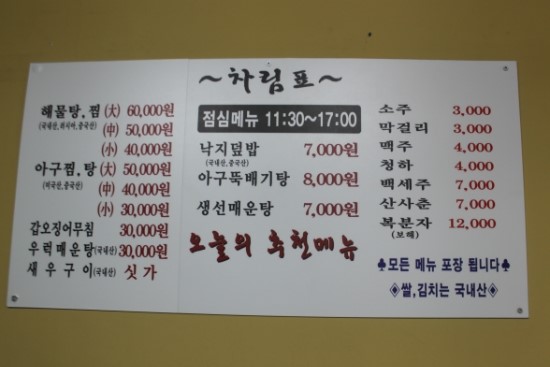 ~차림표~
해물탕.찜 (大) 60,000원
(국내산,러시아,중국산) (中) 50,000원
(小) 40,000원
아구찜.탕 (大) 50,000원
(미국산,중국산) (中) 40,000원
(小) 30,000원
갑오징어무침 30,000원
우럭매운탕(국내산) 30,000원
새우구이(국내산) 싯가
점심메뉴 11:30~17:00
낙지덮밥 7,000원
(국내산,중국산)
아구뚝배기탕 8,000원
생선매운탕 7,000원
오늘의 추천메뉴
소주 3,000
막걸리 3,000
맥주 4,000
청하 4,000
백세주 7,000
산사춘 7,000
복분자 12,000
(보해)
♣모든 메뉴 포장 됩니다♣
◈쌀,김치는 국내산◈